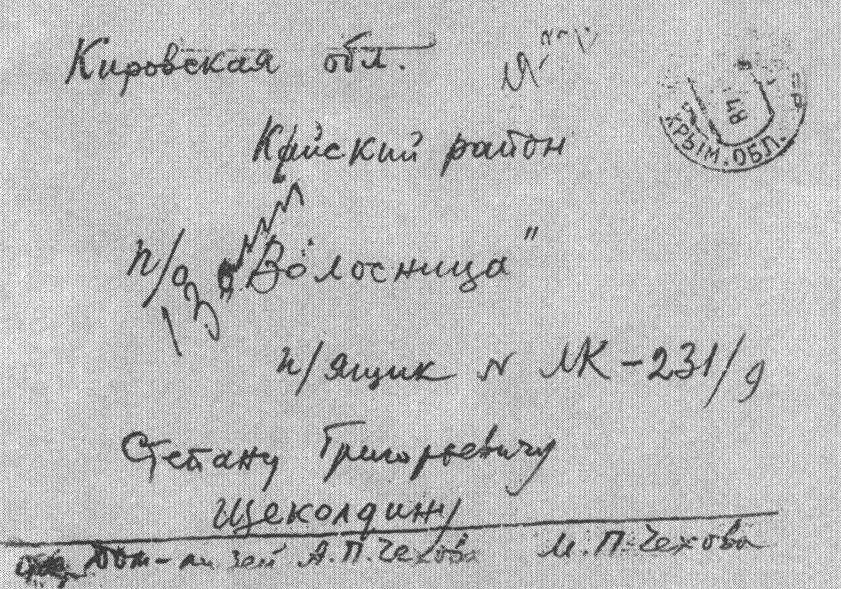 Кировская обл.
Кайский район
п/о "Волосница"
13
п/ящик N ЛК-231/9
Степану Григорьевичу
Щеколдину
Дом-музей А.П.Чехова М.П.Чехова
КРЫМ.ОБЛ.